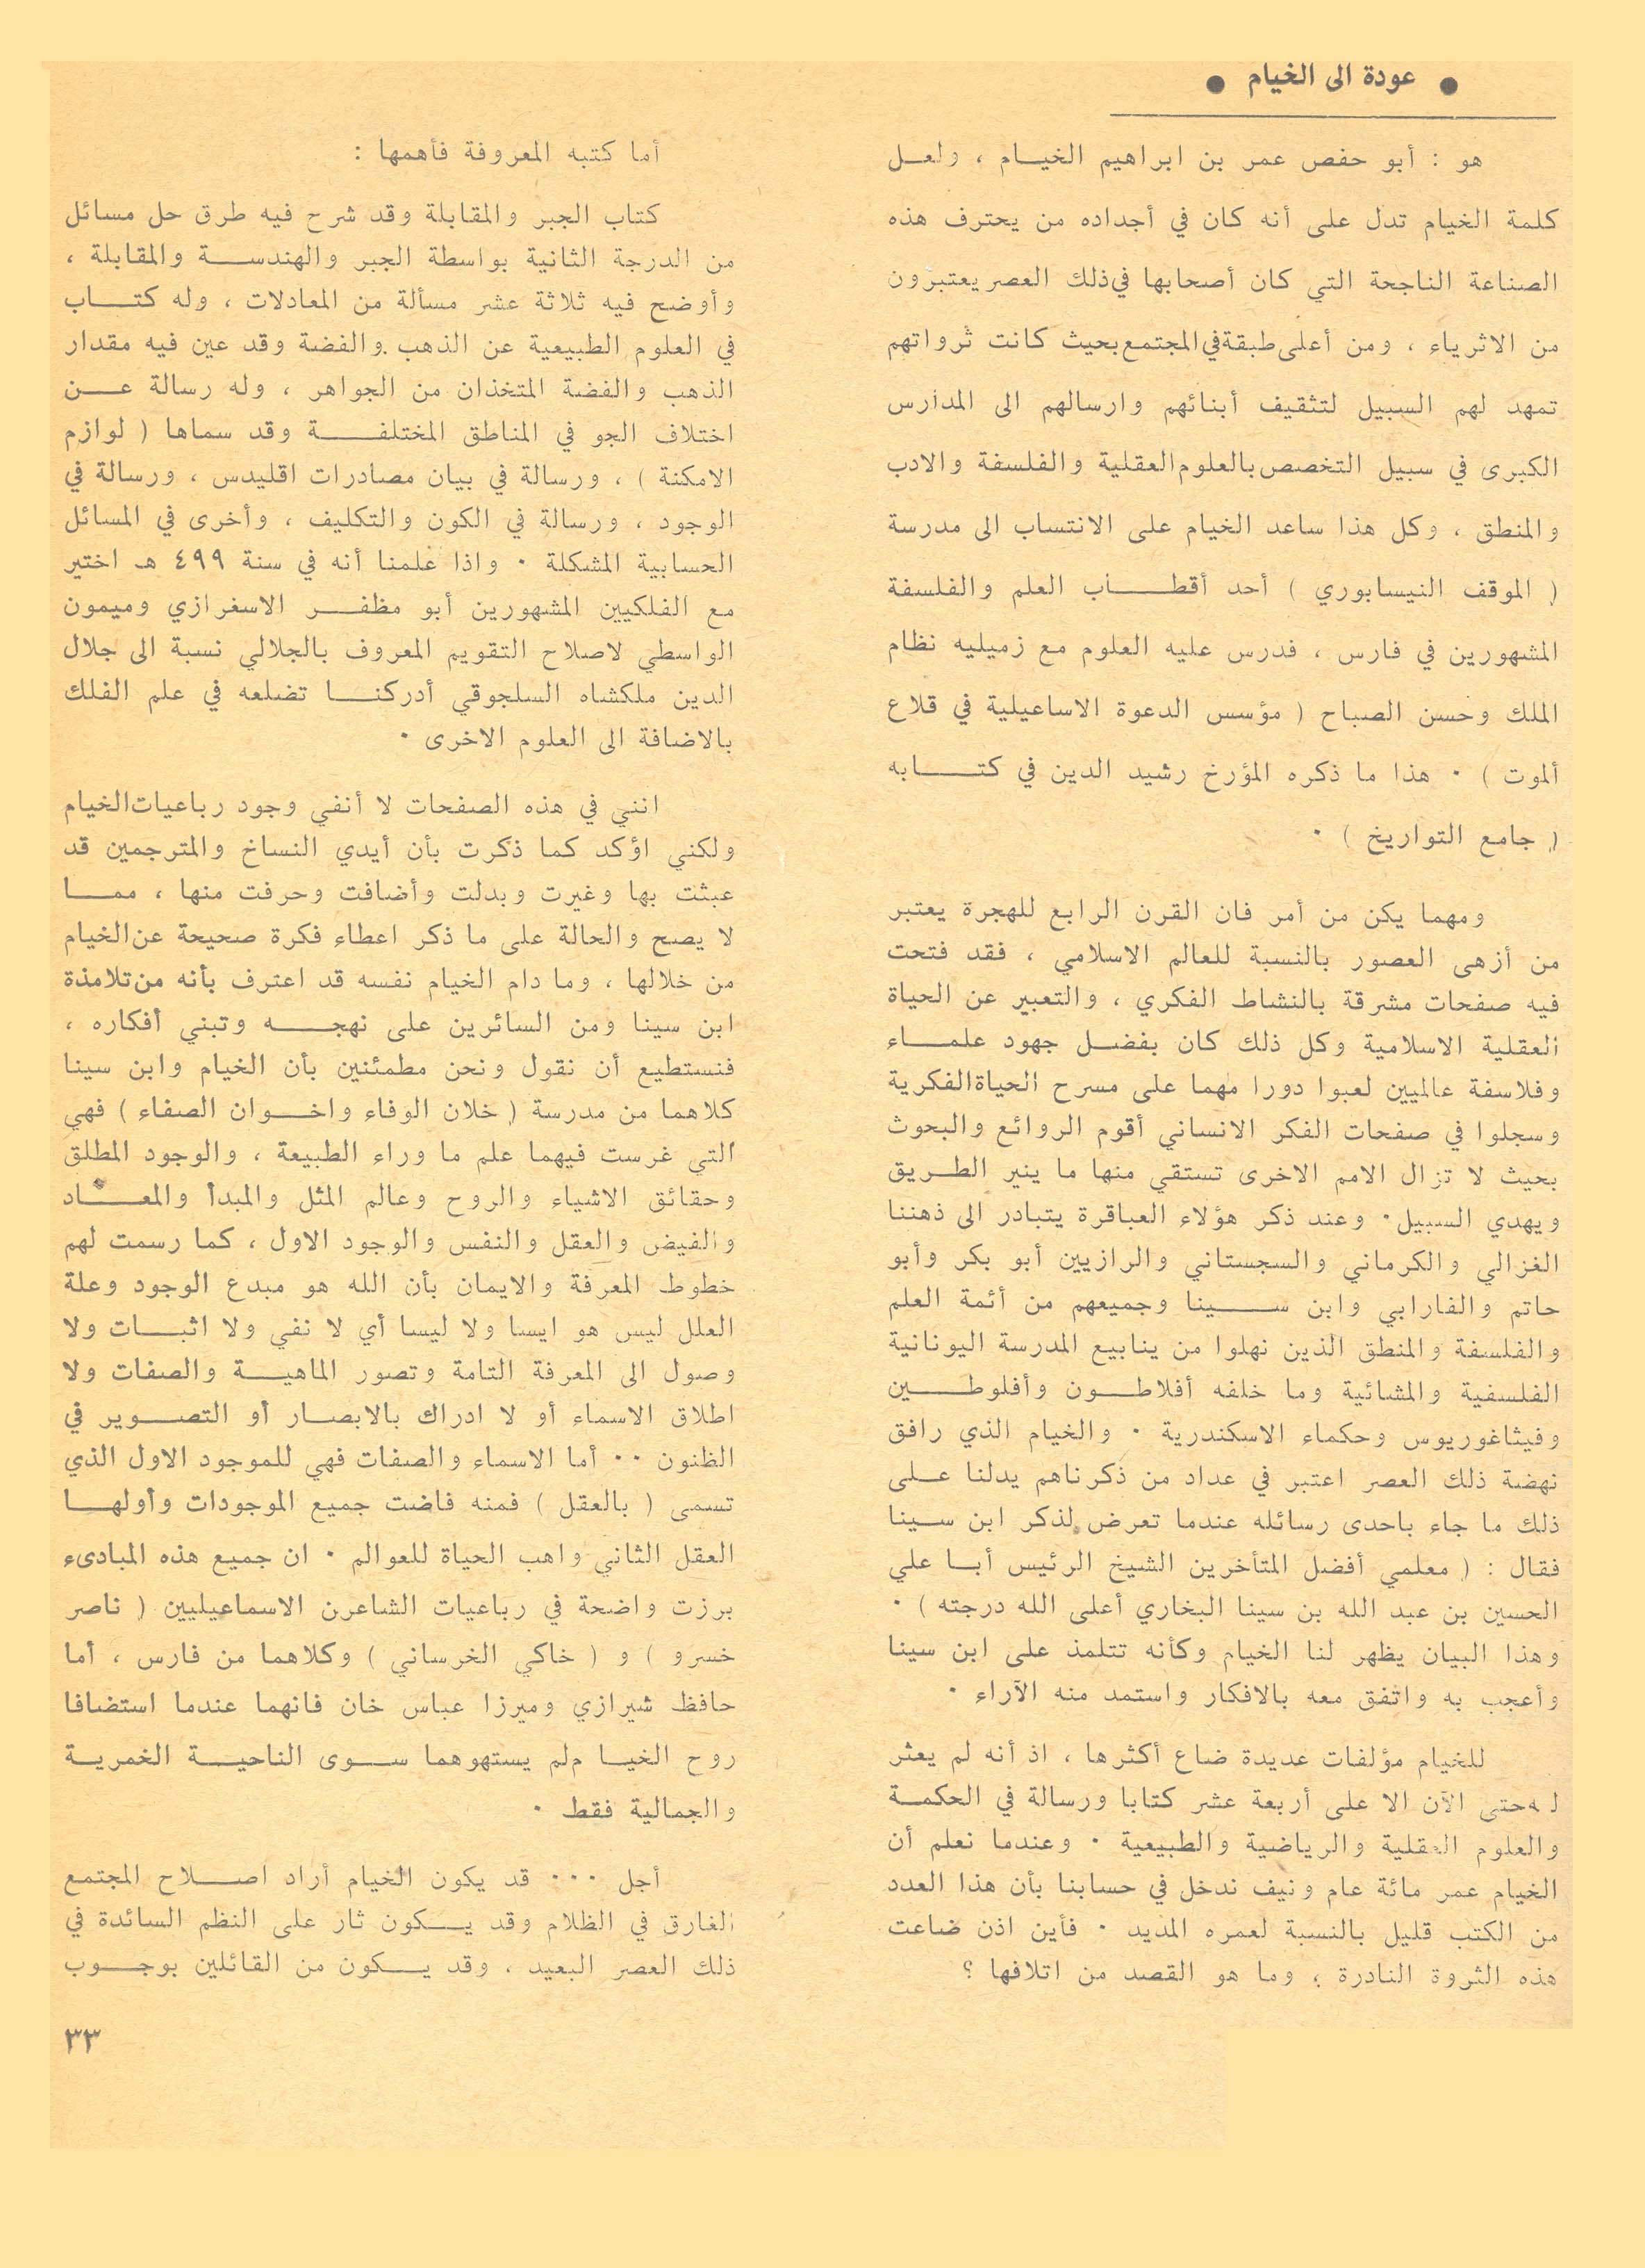 ● عودة الى الخيام ●
هو : أبو حفص عمر بن ابراهيم الخيام ، ولعل
كلمة الخيام تدل على أنه كان في أجداده من يحترف هذه
الصناعة الناجحة التي كان أصحابها في ذلك العصر يعتبرون
من الاثرياء ، ومن أعلى طبقة في المجتمع بحيث كانت ثرواتهم
تمهد لهم السبيل لتثقيف أبنائهم وارسالهم الى المدارس
الكبرى في سبيل التخصص بالعلوم العقلية والفلسفة والادب
والمنطق ، وكل هذا ساعد الخيام على الانتساب الى مدرسة
( الموقف النيسابوري ) أحد أقطاب العلم والفلسفة
المشهورين في فارس ، فدرس عليه العلوم مع زميليه نظام
الملك وحسن الصباح ( مؤسس الدعوة الاساعيلية في قلاع
ألموت ) ٠ هذا ما ذكره المؤرخ رشيد الدين في كتابه
( جامع التواريخ ) ٠
ومهما يكن من أمر فان القرن الرابع للهجرة يعتبر
من أزهى العصور بالنسبة للعالم الاسلامي ، فقد فتحت
فيه صفحات مشرقة بالنشاط الفكري ، والتعبير عن الحياة
العقلية الاسلامية وكل ذلك كان بفضل جهود علماء
وفلاسفة عالميين لعبوا دورا مهما على مسرح الحياة الفكرية
وسجلوا في صفحات الفكر الانساني أقوم الروائع والبحوث
بحيث لا تزال الامم الاخرى تستقي منها ما ينير الطريق
ويهدي السبيل ٠ وعند ذكر هؤلاء العباقرة يتبادر الى ذهننا
الغزالي والكرماني والسجستاني والرازيين أبو بكر وأبو
حاتم والفارابي وابن سينا وجميعهم من أئمة العلم
والفلسفة والمنطق الذين نهلوا من ينابيع المدرسة اليونانية
الفلسفية والمشائية وما خلفه أفلاطون وأفلوطين
وفيثاغوريوس وحكماء الاسكندرية ٠ والخيام الذي رافق
نهضة ذلك العصر اعتبر في عداد من ذكرناهم يدلنا على
ذلك ما جاء باحدى رسائله عندما تعرض لذكر ابن سينا
فقال : ( معلمي أفضل المتأخرين الشيخ الرئيس أبا علي
الحسين بن عبد الله بن سينا البخاري أعلى الله درجته ) ٠
وهذا البيان يظهر لنا الخيام وكأنه تتلمذ على ابن سينا
وأعجب به واتفق معه بالافكار واستمد منه الآراء ٠
للخيام مؤلفات عديدة ضاع أكثرها ، اذ أنه لم يعثر
له حتى الآن الا على أربعة عشر كتابا ورسالة في الحكمة
والعلوم العقلية والرياضية والطبيعية ٠ وعندما نعلم أن
الخيام عمر مائة عام ونيف ندخل في حسابنا بأن هذا العدد
من الكتب قليل بالنسبة لعمره المديد ٠ فأين اذن ضاعت
هذه الثروة النادرة ؛ وما هو القصد من اتلافها ؟
أما كتبه المعروفة فأهمها :
كتاب الجبر والمقابلة وقد شرح فيه طرق حل مسائل
من الدرجة الثانية بواسطة الجبر والهندسة والمقابلة ،
وأوضح فيه ثلاثة عشر مسألة من المعادلات ، وله كتاب
في العلوم الطبيعية عن الذهب والفضة وقد عين فيه مقدار
الذهب والفضة المتخذان من الجواهر ، وله رسالة عن
اختلاف الجو في المناطق المختلفة وقد سماها ( لوازم
الامكنة ) ، ورسالة في بيان مصادرات اقليدس ، ورسالة في
الوجود ، ورسالة في الكون والتكليف ، وأخرى في المسائل
الحسابية المشكلة ٠ واذا علمنا أنه في سنة ٤٩٩ هـ اختير
مع الفلكيين المشهورين أبو مظفر الاسفرازي وميمون
الواسطي لاصلاح التقويم المعروف بالجلالي نسبة الى جلال
الدين ملكشاه السلجوقي أدركنا تضلعه في علم الفلك
بالاضافة الى العلوم الاخرى ٠
انني في هذه الصفحات لا أنفي وجود رباعيات الخيام
ولكني اؤكد كما ذكرت بأن أيدي النساخ والمترجمين قد
عبثت بها وغيرت وبدلت وأضافت وحرفت منها ، مما
لا يصح والحالة على ما ذكر اعطاء فكرة صحيحة عن الخيام
من خلالها ، وما دام الخيام نفسه قد اعترف بأنه من تلامذة
ابن سينا ومن السائرين على نهجه وتبني أفكاره ،
فنستطيع أن نقول ونحن مطمئنين بأن الخيام وابن سينا
كلاهما من مدرسة ( خلان الوفاء واخوان الصفاء ) فهي
التي غرست فيهما علم ما وراء الطبيعة ، والوجود المطلق
وحقائق الاشياء والروح وعالم المثل والمبدأ والمعاد
والفيض والعقل والنفس والوجود الاول ، كما رسمت لهم
خطوط المعرفة والايمان بأن الله هو مبدع الوجود وعلة
العلل ليس هو ايسا ولا ليسا أي لا نفي ولا اثبات ولا
وصول الى المعرفة التامة وتصور الماهية والصفات ولا
اطلاق الاسماء أو لا ادراك بالابصار أو التصوير في
الظنون ٠٠ أما الاسماء والصفات فهي للموجود الاول الذي
تسمى ( بالعقل ) فمنه فاضت جميع الموجودات وأولها
العقل الثاني واهب الحياة للعوالم ٠ ان جميع هذه المبادىء
برزت واضحة في رباعيات الشاعرن الاسماعيليين ( ناصر
خسرو ) و ( خاكي الخرساني ) وكلاهما من فارس ، أما
حافظ شيرازي وميرزا عباس خان فانهما عندما استضافا
روح الخيا م لم يستهوهما سوى الناحية الخمرية
والجمالية فقط ٠
أجل ٠٠٠ قد يكون الخيام أراد اصلاح المجتمع
الغارق في الظلام وقد يكون ثار على النظم السائدة في
ذلك العصر البعيد ، وقد يكون من القائلين بوجوب
٣٣